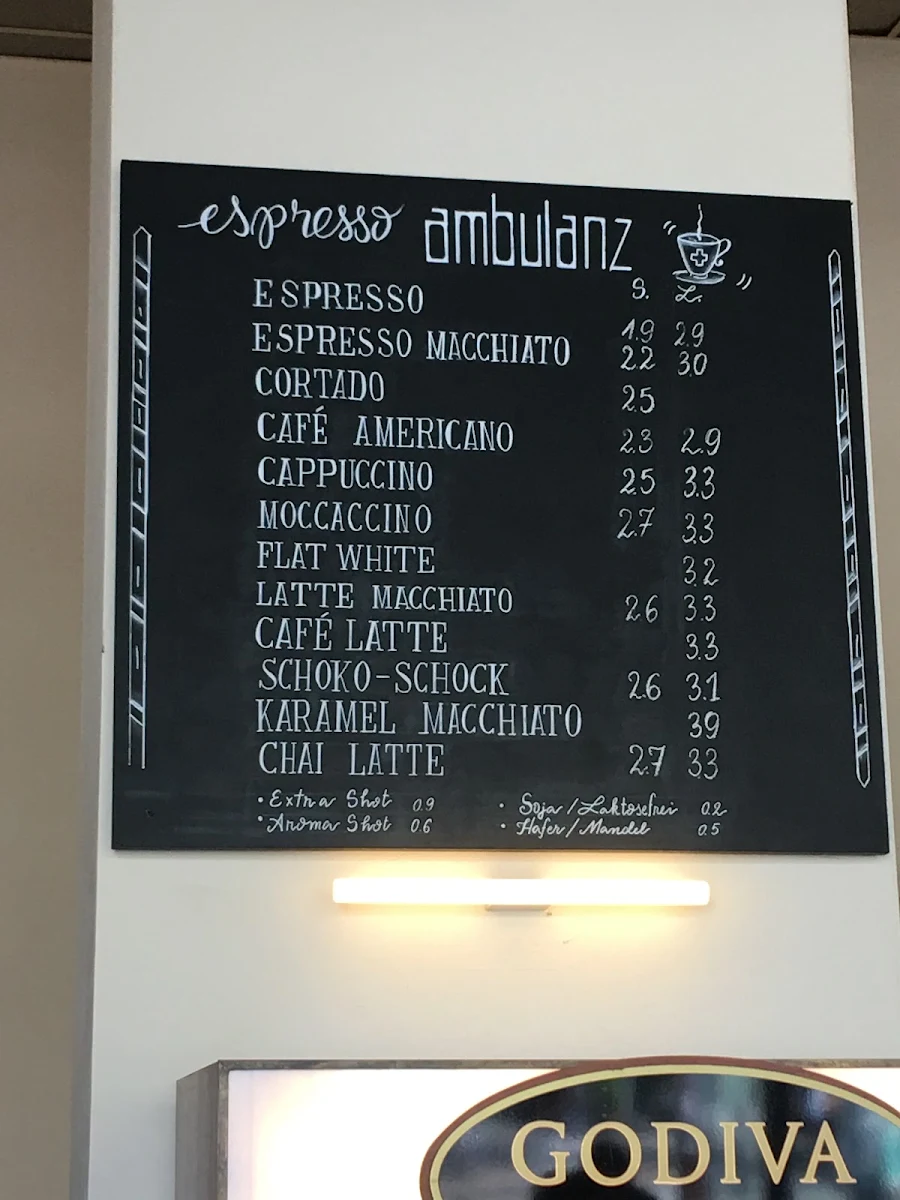 espresso ambulanz
S. L.
ESPRESSO 1.9 2.9
ESPRESSO MACCHIATO 2.2 3.0
CORTADO 2.5
CAFÉ AMERICANO 2.3 2.9
CAPPUCCINO 2.5 3.3
MOCCACCINO 2.7 3.3
FLAT WHITE 3.2
LATTE MACCHIATO 2.6 3.3
CAFÉ LATTE 3.3
SCHOKO-SCHOCK 2.6 3.1
KARAMEL MACCHIATO 39
CHAI LATTE 2.7 33
• Extra Shot 0.9 • Soja/Laktosefrei 0.2
• Aroma Shot 0.6 • Hafer/Mandel 0.5
GODIVA